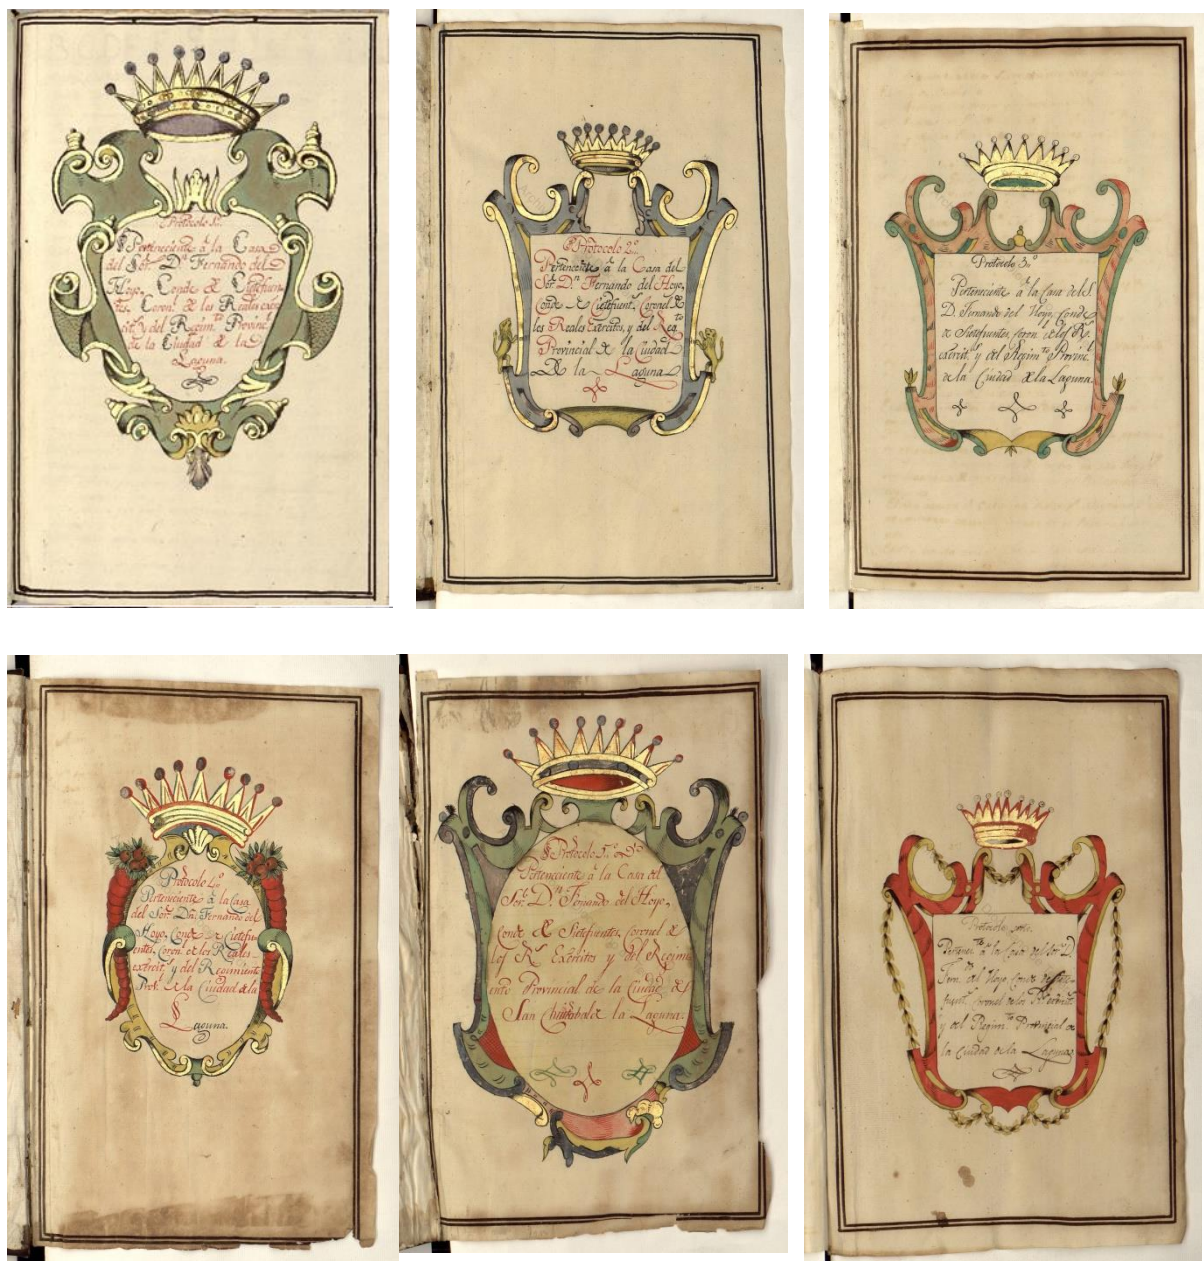 Protocolo 1º
Perteneciente à la Casa
del Sor. Dn. Fernando del
Hoyo, Conde de Cietefuen-
tes, Coronl. de los Reales exer-
cits. y del Regimto. Provincl.
de la Ciudad de la
Laguna.
Protocolo 2º
Perteneciente à la Casa del
Sor. Dn. Fernando del Hoyo,
Conde de Cietefuents. Coronel de
los Reales Exercitos, y del Regto.
Provincial de la Ciudad
de la Laguna
Protocolo 3º
Perteneciente à la Casa del S.
D. Fernando del Hoyo, Conde
de Sietefuentes, Coronl. de los Rs.
exercits. y del Regimto. Provincl.
de la Ciudad de la Laguna
Protocolo 4º
Perteneciente à la Casa
del Sor. Dn. Fernando del
Hoyo, Conde de Cietefu-
entes, Coronl. de los Reales
exercits. y del Regimiento
Prol. de la Ciudad de la
Laguna.
Protocolo 5º
Perteneciente à la Casa del
Sor. Dn. Fernando del Hoyo,
Conde de Sietefuentes, Coronel de
los Rs. Exercitos y del Regimi-
ento Provincial de la Ciudad de
San Christobal de la Laguna.
Protocolo
Pertenecte. à la Casa del Sor. D.
Fern. del Hoyo Conde de Siete-
fuents. Coronel de los Rs. exercits.
y del Regimto. Provincial de
la Ciudad de la Laguna